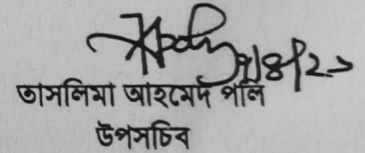 তাসলিমা আহমেদ পলি
উপসচিব